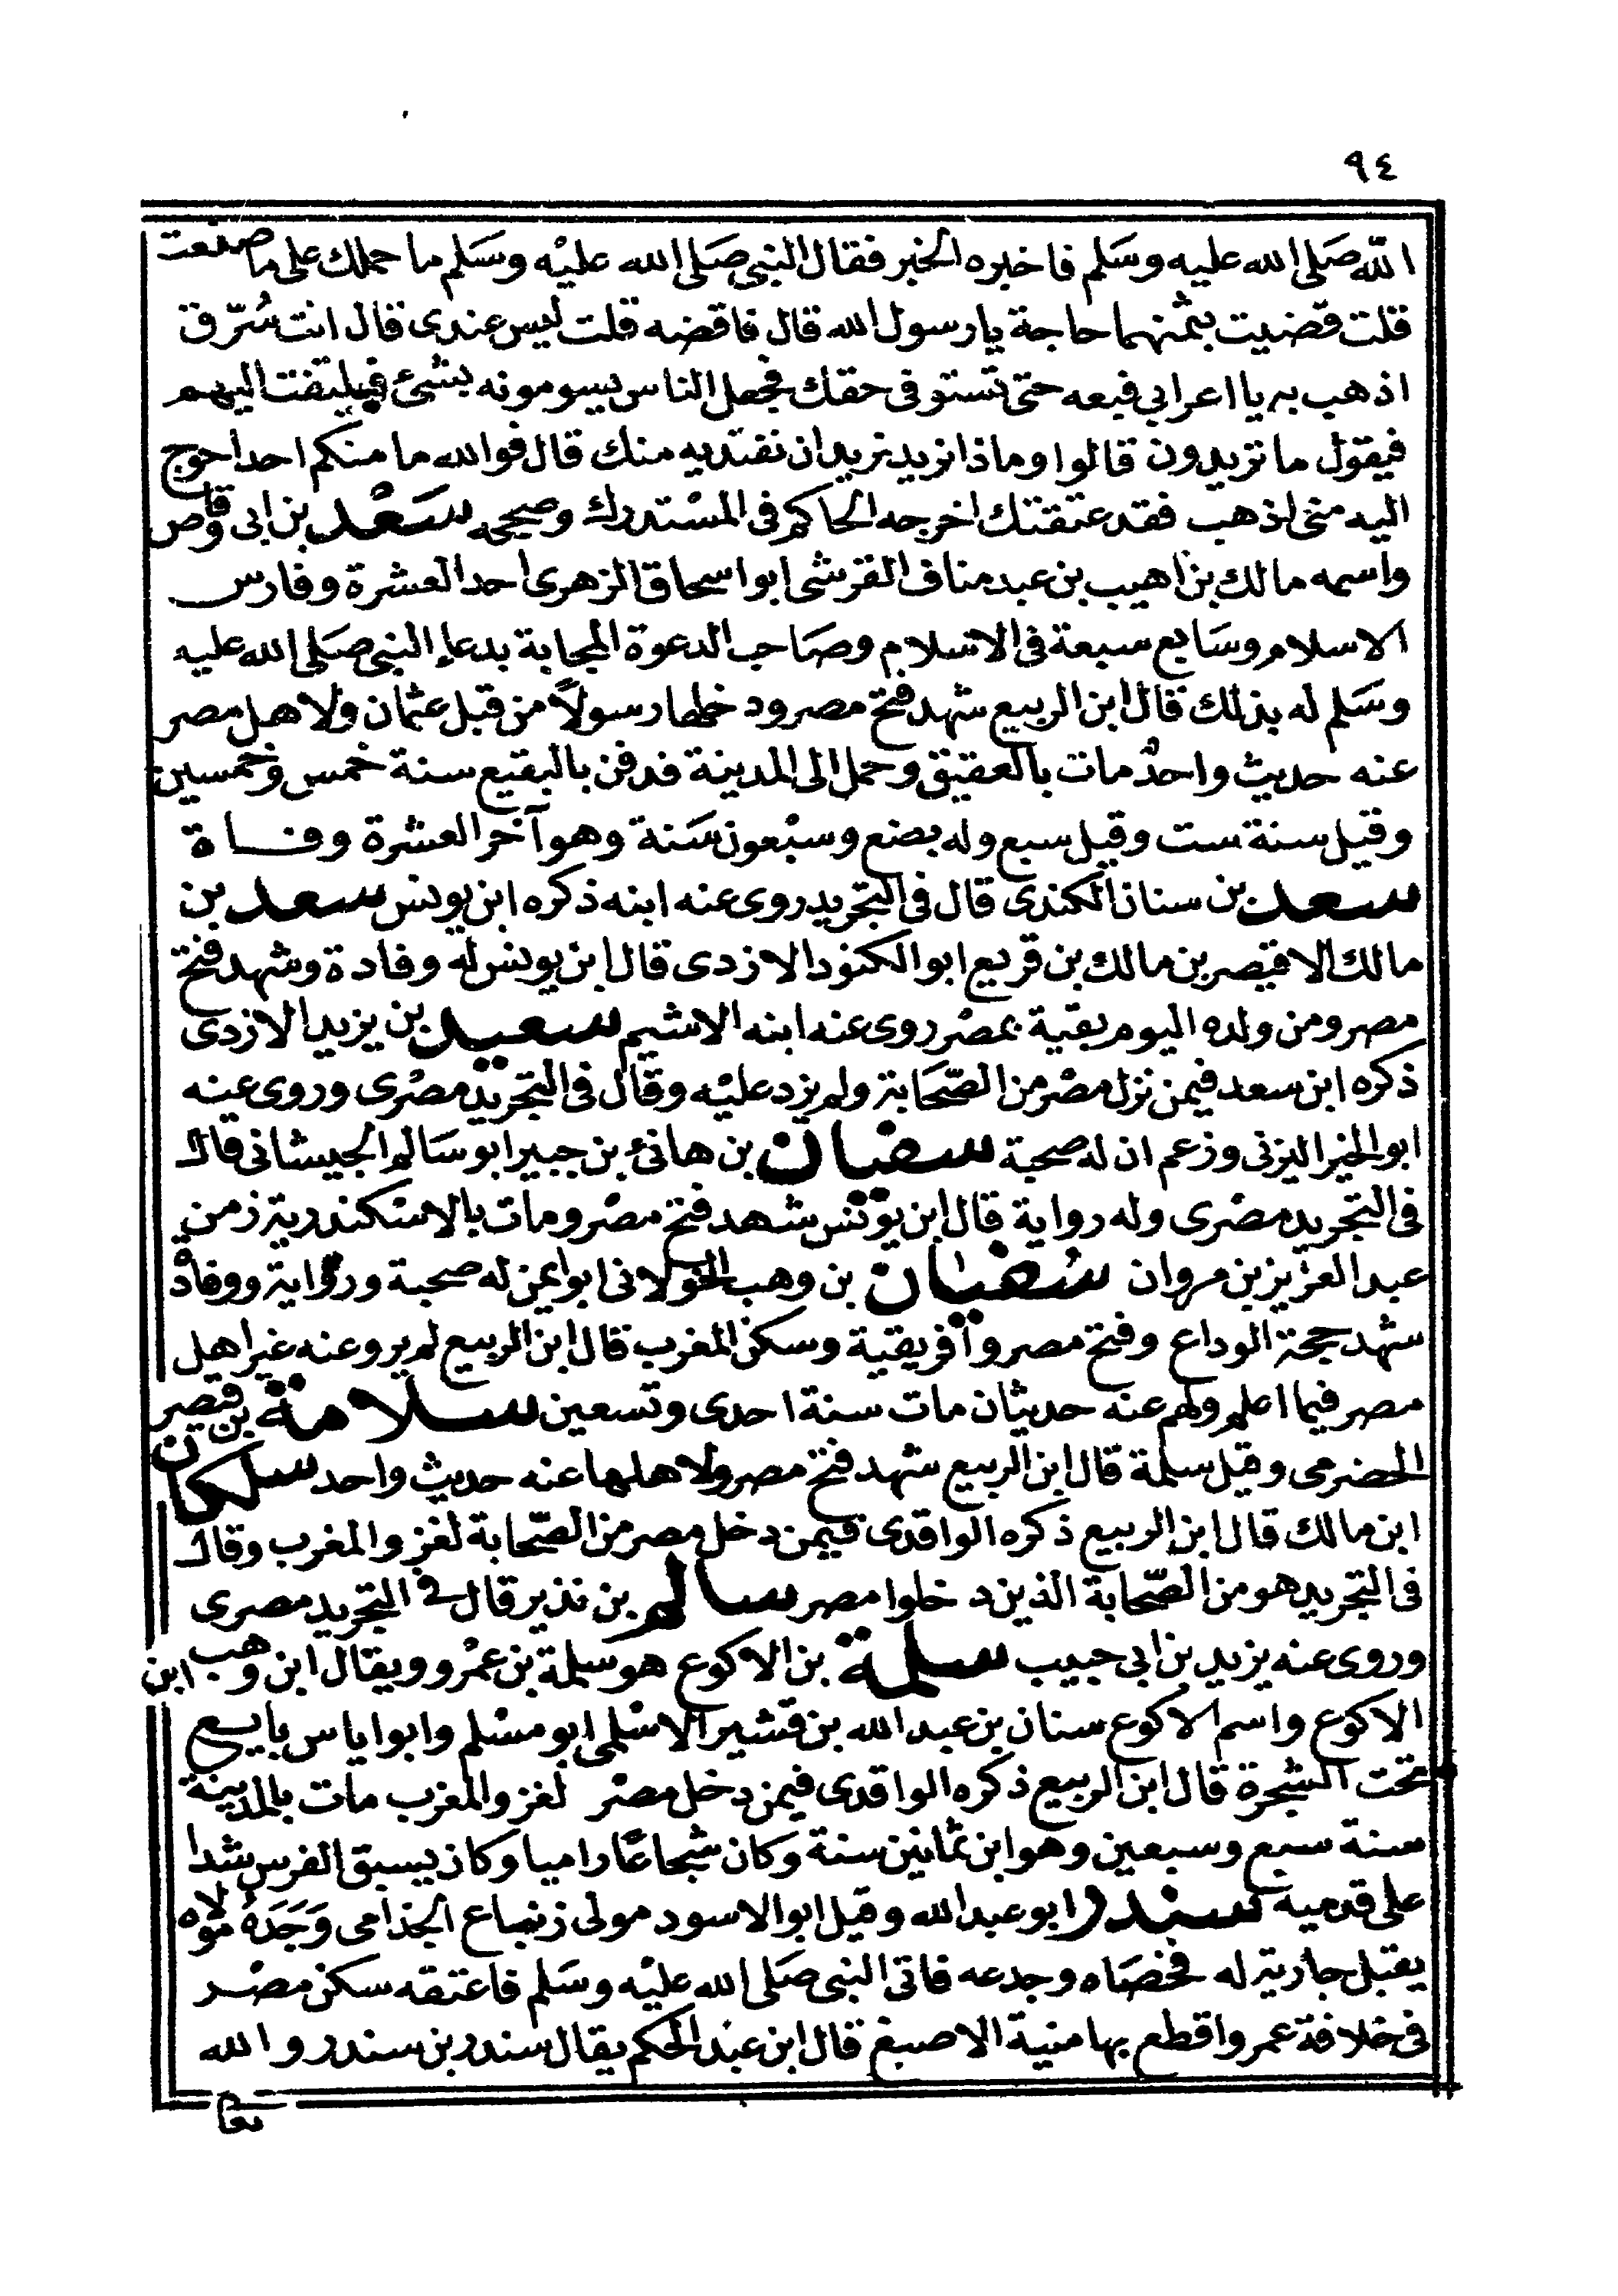 ٩٤
الله صَلى الله عليه وسَلم فاخبره الخبر فقال النبي صَلى الله عليْه وسَلم ما حملك على ما صنعت
قلت قضيت بثمنهما حاجة يا رسول الله قال فاقضه قلت ليس عندى قال انت سُرّق
اذهب به يا اعرابي فبعه حتى تستوفى حقك فجعل الناس يسومونه بشئ فيلتفت اليهم
فيقول ما تريدون قالوا وماذا نريد نريد ان نفتديه منك قال فوالله ما منكم احد احوج
اليه منى اذهب فقد عتقتك اخرجه الحاكم فى المسْتدرك وصححه سَعْد بن ابى وقاص
واسمه مالك بن اهيب بن عبد مناف القرشى ابو اسحاق الزهرى احد العشرة وفارس
الاسلام وسَابع سبعة فى الاسْلام وصَاحب الدعوة المجابة بدعاء النبى صَلى الله عليه
وسَلم له بذلك قال ابن الربيع شهد فتح مصر ود خلها رسولاً من قبل عثمان ولاهل مصر
عنه حديث واحدٌ مات بالعقيق وحمل الى المدينة فدفن بالبقيع سنة خمس وخمسين
وقيل سنة ست وقيل سبع وله بضع وسبْعون سَنة وهو آخر العشرة وفاة
سعد بن سنان الكندى قال فى التجريد روى عنه ابنه ذكره ابن يونس سعد بن
مالك الاقيصر بن مالك بن قريع ابو الكنود الازدى قال ابن يونس له وفادة وشهد فتح
مصر ومن ولده اليوم بقية بمصْر روى عنه ابنه الاشيم سعيد بن يزيد الازدى
ذكره ابن سعد فيمن نزل مصْر من الصّحَابة ولم يزد عليْه وقال فى التجريد مصْرى وروى عنه
ابو الخير اليزنى وزعم ان له صحبة سفيان بن هانئ بن جبير ابو سَالم الجيشانى قال
فى التجريد مصْرى وله رواية قال ابن يونس شهد فتح مصْر ومات بالاسْكندرية زمن
عبد العزيز بن مروان سُفيان بن وهب الخولانى ابو ايمن له صحبة ورواية ووفادة
شهد حجة الوداع وفتح مصر وآفريقية وسكن المغرب قال ابن الربيع لم يرو عنه غير اهل
مصر فيما اعلم ولهم عنه حديثان مات سنة احدى وتسعين سلامة بن قيصر
الحضرمى وقيل سلمة قال ابن الربيع شهد فتح مصر ولاهلها عنه حديث واحد سلكان
ابن مالك قال ابن الربيع ذكره الواقدى فيمن دخل مصر من الصّحابة لغزو المغرب وقال
فى التجريد هو من الصّحابة الذين د خلوا مصر سالم بن نذير قال فى التجريد مصرى
وروى عنه يزيد بن ابى حبيب سلمة بن الاكوع هو سلمة بن عمْرو ويقال ابن وهب ابن
الاكوع واسم الاكوع سنان بن عبد الله بن قشير الاسْلمى ابو مسْلم وابو اياس بايع
تحت الشجرة قال ابن الربيع ذكره الواقدى فيمن دخل مصْر لغزو المغرب مات بالمدينة
سنة سبع وسبعين وهو ابن ثمانين سنة وكان شجاعًا راميا وكان يسبق الفرس شدا
على قدميه سندر ابو عبد الله وقيل ابو الاسود مولى زنباع الجذامى وَجَدَهُ مولاه
يقبل جارية له فخصَاه وجدعه فاتى النبى صَلى الله عليْه وسَلم فاعتقه سكن مصْر
فى خلافة عمر واقطع بها منية الاصبغ قال ابن عبد الحكم يقال سندر بن سندر والله